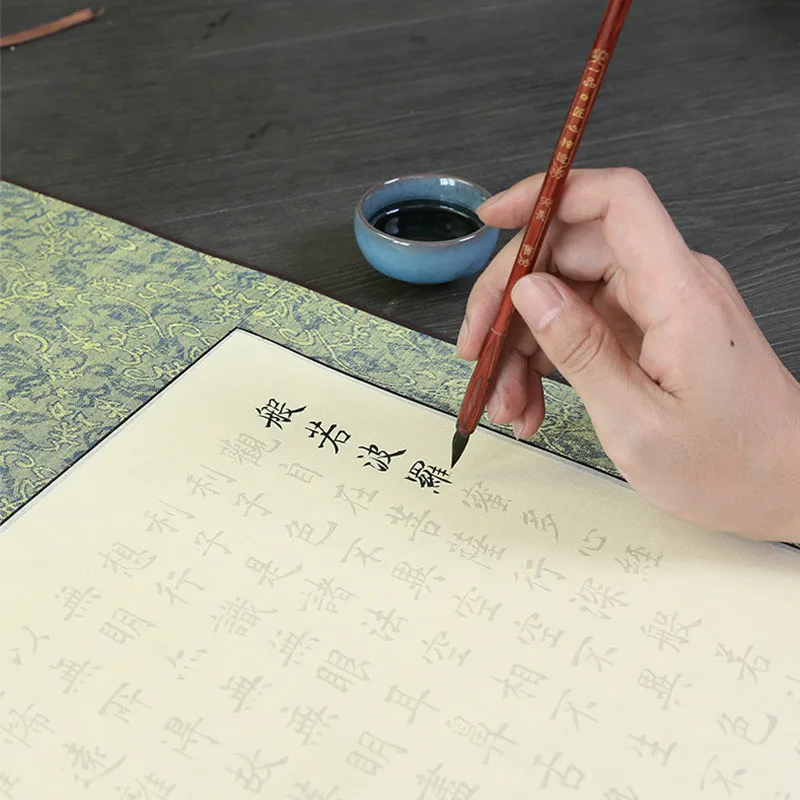 般若波羅蜜多心經
觀自在菩薩行深般若
利子色不異空空不異色
利子是諸法空相不生不
想行識無眼耳鼻舌
無明亦無無明盡
以無所得故
怖遠離